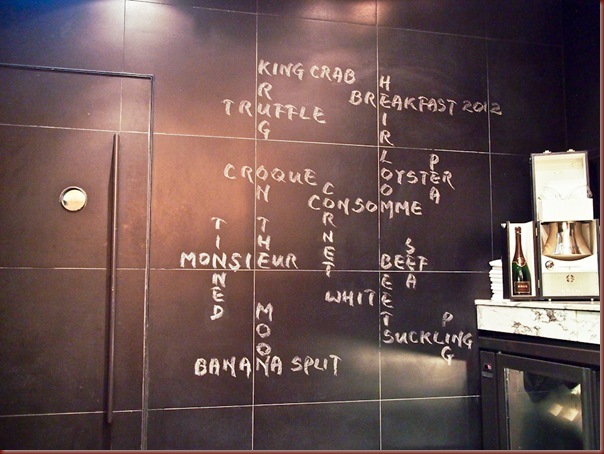 KING CRAB
KRUG ON THE MOON
HEIRLOOM BEETS
BREAKFAST 2012
TRUFFLE
CROQUE
PEA
OYSTER
CORNET
CONSOMME
TINNED
MONSIEUR
SEA
BEEF
WHITE
PIG
SUCKLING
BANANA SPLIT